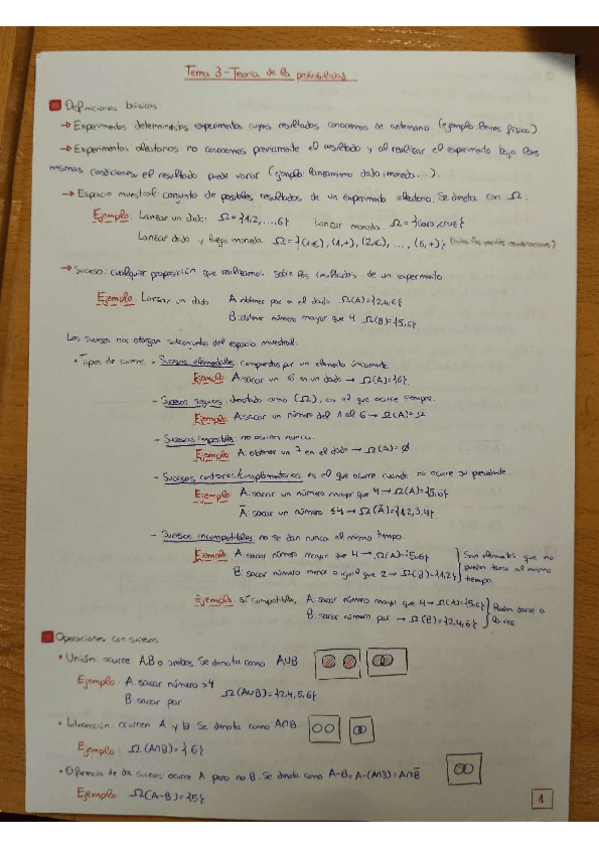 Tema 3 - Teoría de la probabilidad
Definiciones básicas:
→ Experimentos deterministas experimentos cuyos resultados conocemos de antemano (ejemplo: leyes física).
→ Experimentos aleatorios no conocemos previamente el resultado y al realizar el experimento bajo las
mismas condiciones, el resultado puede variar (ejemplo: lanzamiento dado, moneda...).
→ Espacio muestral: conjunto de posibles resultados de un experimento aleatorio. Se denota con Ω.
Ejemplo: Lanzar un dado: Ω={1,2,...,6} Lanzar moneda Ω={cara,cruz}
Lanzar dado y luego moneda Ω={(1,c),(1,+),(2,c),...,(6,+)}
→ Suceso: cualquier proposición que realizamos sobre los resultados de un experimento.
Ejemplo: Lanzar un dado A: obtener par en el dado Ω(A)={2,4,6}
B: obtener número mayor que 4 Ω(B)={5,6}
Los sucesos nos otorgan subconjuntos del espacio muestral.
• Tipos de sucesos - Sucesos elementales: compuestos por un elemento únicamente.
Ejemplo A: sacar un 6 en un dado → Ω(A)={6}.
- Sucesos seguros, denotado como (Ω), es el que ocurre siempre.
Ejemplo A: sacar un número del 1 al 6 → Ω(A)=Ω
- Sucesos imposibles: no ocurren nunca.
Ejemplo A: obtener un 7 en el dado → Ω(A)=∅
- Sucesos contrarios/complementarios es el que ocurre cuando no ocurre su
Ejemplo A: sacar un número mayor que 4 → Ω(A)={5,6}
A̅: sacar un número ≤4 → Ω(A̅)={1,2,3,4}
- Sucesos incompatibles: no se dan nunca al mismo tiempo.
Ejemplo A: sacar número mayor que 4 → Ω(A)={5,6} } Son elementos que no
B: sacar número menor o igual que 2 → Ω(B)={1,2} pueden darse al mismo
tiempo.
Ejemplo sí compatibles, A: sacar número mayor que 4 → Ω(A)={5,6} } Pueden darse a
B: sacar número par → Ω(B)={2,4,6}
Operaciones con sucesos
• Unión ocurre A, B o ambos. Se denota como A∪B
Ejemplo: A: sacar número >4 Ω(A∪B)={2,4,5,6}
B: sacar par
• Intersección ocurren A y B. Se denota como A∩B
Ejemplo: Ω(A∩B)={6}
• Diferencia de dos sucesos: ocurre A pero no B. Se denota como A-B=A-(A∩B)=A∩B̅
Ejemplo Ω(A-B)={5}
1